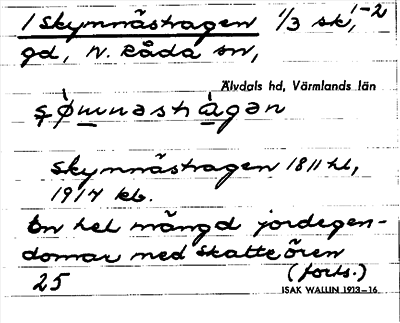 1 Skymnästragen 1/3 sk, 1-2
gd, N. Råda sn,
Älvdals hd, Värmlands län
Skymnästragen 1811 hl,
1917 kb.
En hel mängd jordegen-
domar med Skatte ören
(forts.)
25
ISAK WALLIN 1913-16